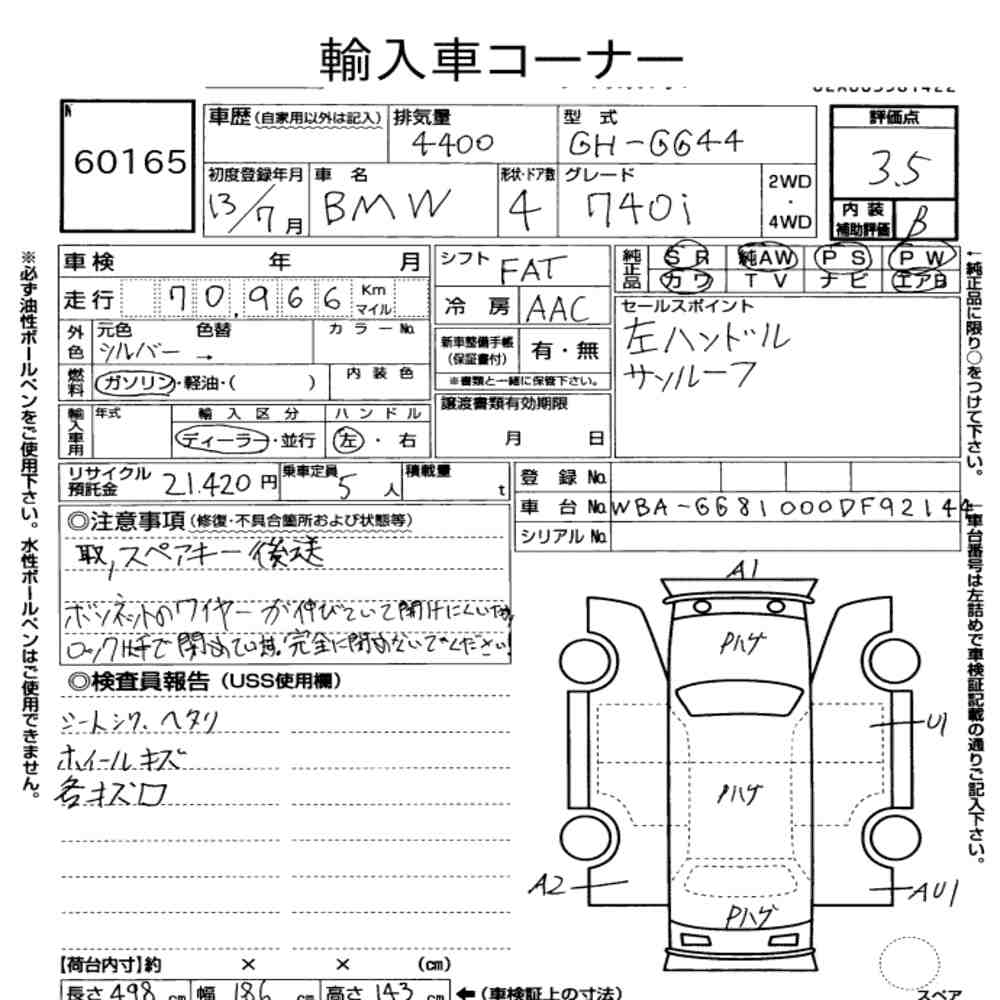 輸入車コーナー
№
60165
車歴(自家用以外は記入)
排気量
4400
型式
GH-GG44
評価点
3.5
初度登録年月
13/7月
車名
BMW
形状・ドア数
4
グレード
740i
2WD
・
4WD
内装
補助評価
B
車検 年 月
シフト
FAT
純正品
SR 純AW PS PW
カワ TV ナビ エアB
走行 70,966 Km
マイル
冷房
AAC
セールスポイント
左ハンドル
サンルーフ
外色
元色 色替 カラーNo.
シルバー →
新車整備手帳
(保証書付)
有・無
※書類と一緒に保管下さい。
燃料
ガソリン・軽油・( )
内装色
譲渡書類有効期限
月 日
輸入車用
年式
輸入区分
ハンドル
ディーラー・並行
左・右
リサイクル
預託金
21.420円
乗車定員
5人
積載量
t
登録No.
車台No. WBA-GG81000DF92144
シリアルNo.
◎注意事項(修復・不具合箇所および状態等)
取,スペアキー後送
ボンネットのワイヤーが伸びていて開けにくい為
ロックせずで閉めています。完全に閉めないでください!
◎検査員報告(USS使用欄)
シートシワ、ヘタリ
ホイールキズ
各キズ凹
A1
Pハゲ
U1
Pハゲ
A2
AU1
Pハゲ
スペア
【荷台内寸】約 × × (cm)
長さ498cm 幅186cm 高さ143cm ←(車検証上の寸法)
※必ず油性ボールペンをご使用下さい。水性ボールペンはご使用できません。
←純正品に限り○をつけて下さい。
←車台番号は左詰めで車検証記載の通りご記入下さい。